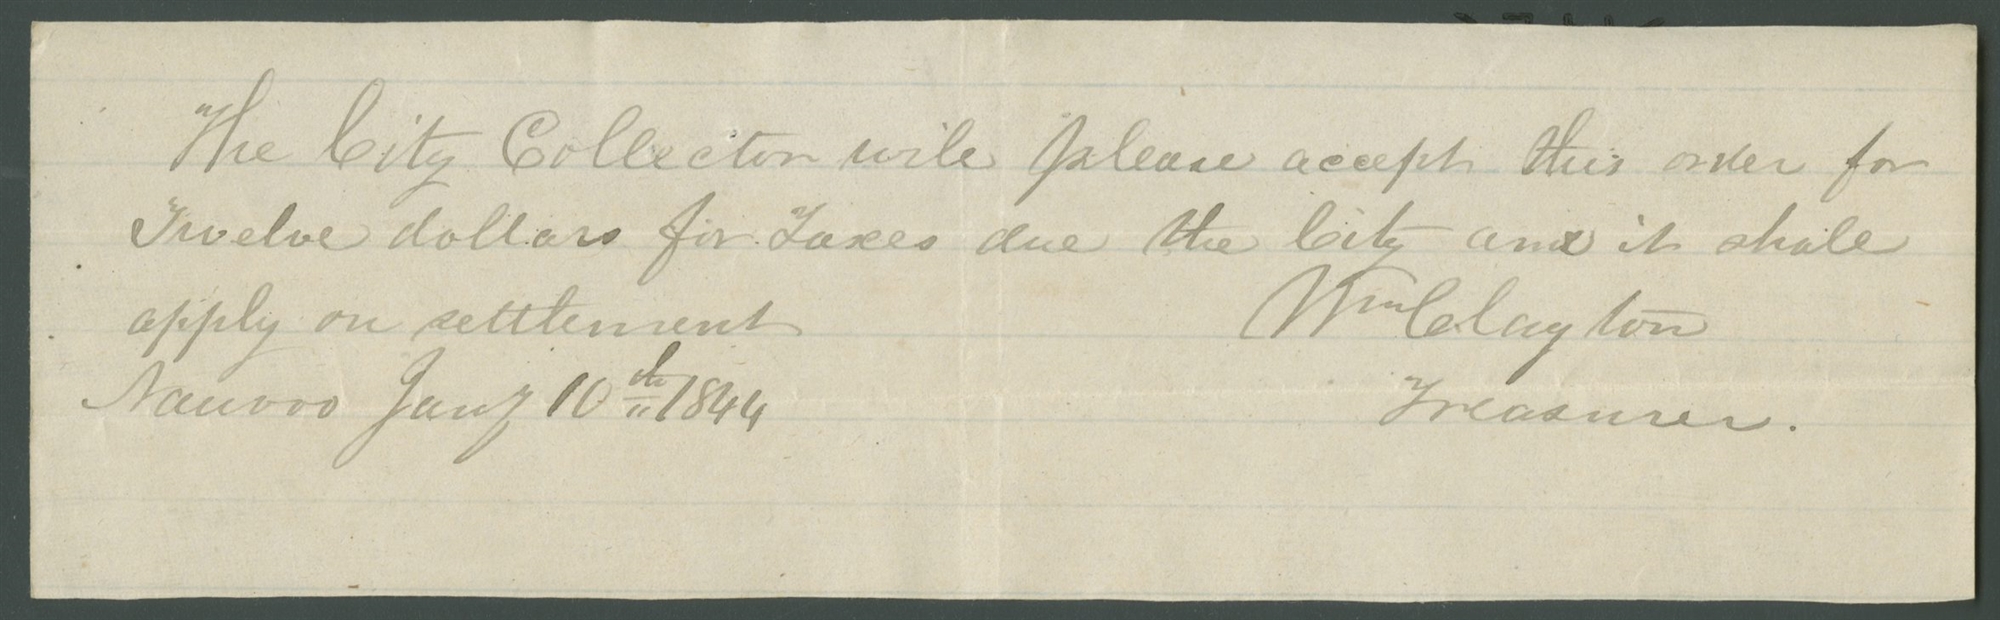 The City Collector will please accept this order for
Twelve dollars for Taxes due the City and it shall
apply on settlement
Wm Clayton
Nauvoo Jany 10th 1844
Treasurer.